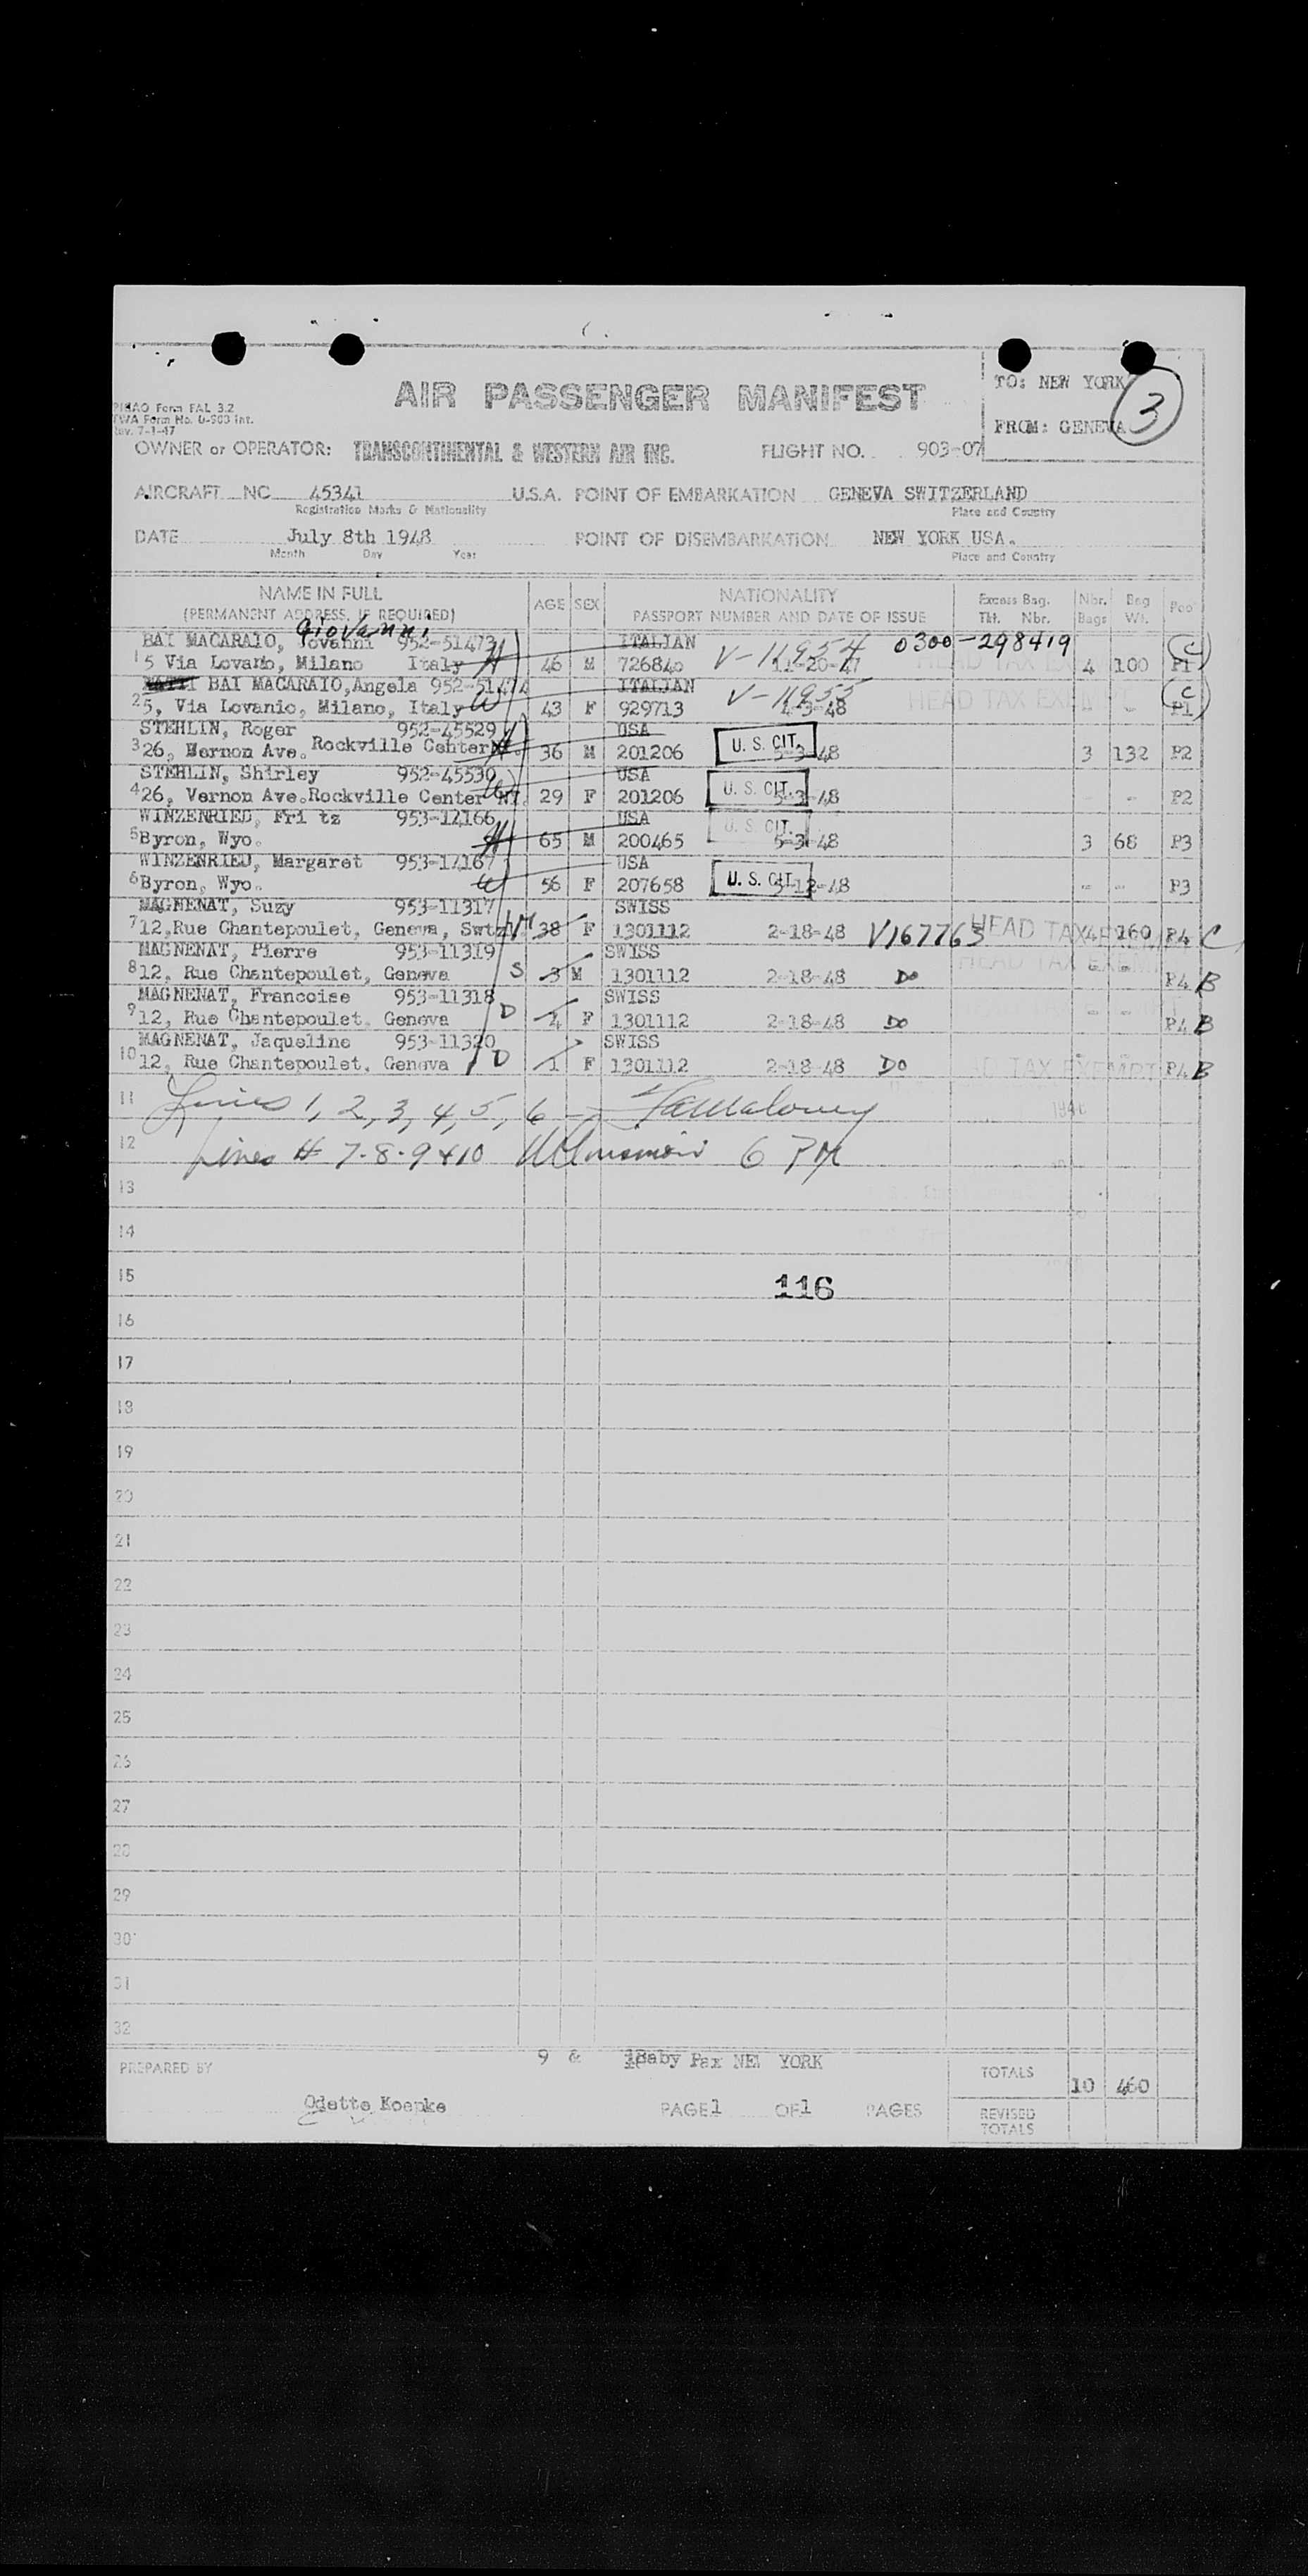 AIR PASSENGER MANIFEST
TO: NEW YORK
3
FROM: GENEVA
PICAO Form FAL 3.2
TWA Form No. O-903 Int.
Rev. 7-1-47
OWNER or OPERATOR: TRANSCONTINENTAL & WESTERN AIR INC. FLIGHT NO. 903-07
AIRCRAFT NC 45341 U.S.A. POINT OF EMBARKATION GENEVA SWITZERLAND
Registration Marks & Nationality Place and Country
DATE July 8th 1948 POINT OF DISEMBARKATION NEW YORK USA.
Month Day Year Place and Country
NAME IN FULL AGE SEX NATIONALITY Excess Bag. Nbr. Bag
(PERMANENT ADDRESS, IF REQUIRED) PASSPORT NUMBER AND DATE OF ISSUE Tkt. Nbr. Bags Wt. Pool
Giovanni
BAI MACARAIO, Jovanni 952-51473 ITALIAN V-11954 0300-298419 C
1 5 Via Lovanio, Milano Italy H 46 M 726840 11-20-47 4 100 P1
BAI MACARAIO, Angela 952-51474 ITALIAN V-11955 HEAD TAX EXEMPT C
2 5, Via Lovanio, Milano, Italy W 43 F 929713 4-3-48 - - P1
STEHLIN, Roger 952-45529 USA U. S. CIT.
3 26, Wernon Ave. Rockville Center NY. H 36 M 201206 5-3-48 3 132 P2
STEHLIN, Shirley 952-45530 USA U. S. CIT.
4 26, Vernon Ave. Rockville Center NY. W 29 F 201206 5-3-48 - - P2
WINZENRIED, Fri tz 953-12166 USA U. S. CIT.
5 Byron, Wyo. H 65 M 200465 5-3-48 3 68 P3
WINZENRIED, Margaret 953-12167 USA U. S. CIT.
6 Byron, Wyo. W 56 F 207658 5-12-48 - - P3
MAGNENAT, Suzy 953-11317 SWISS
7 12, Rue Chantepoulet, Geneva, Swtz M 38 F 1301112 2-18-48 V167763 HEAD TAX 4 160 P4 C
MAGNENAT, Pierre 953-11319 SWISS HEAD TAX EXEMPT
8 12, Rue Chantepoulet, Geneva S 3 M 1301112 2-18-48 Do - - P4 B
MAGNENAT, Francoise 953-11318 SWISS
9 12, Rue Chantepoulet, Geneva D 4 F 1301112 2-18-48 Do - - P4 B
MAGNENAT, Jaqueline 953-11320 SWISS
10 12, Rue Chantepoulet, Geneva D 1 F 1301112 2-18-48 Do HEAD TAX EXEMPT P4 B
11 Lines 1, 2, 3, 4, 5, 6
12 Lines # 7-8-9 & 10 6 PM
13
14
15 116
16
17
18
19
20
21
22
23
24
25
26
27
28
29
30
31
32
9 & 1Baby Pax NEW YORK
PREPARED BY TOTALS 10 460
Odette Koepke PAGE 1 OF 1 PAGES REVISED
TOTALS